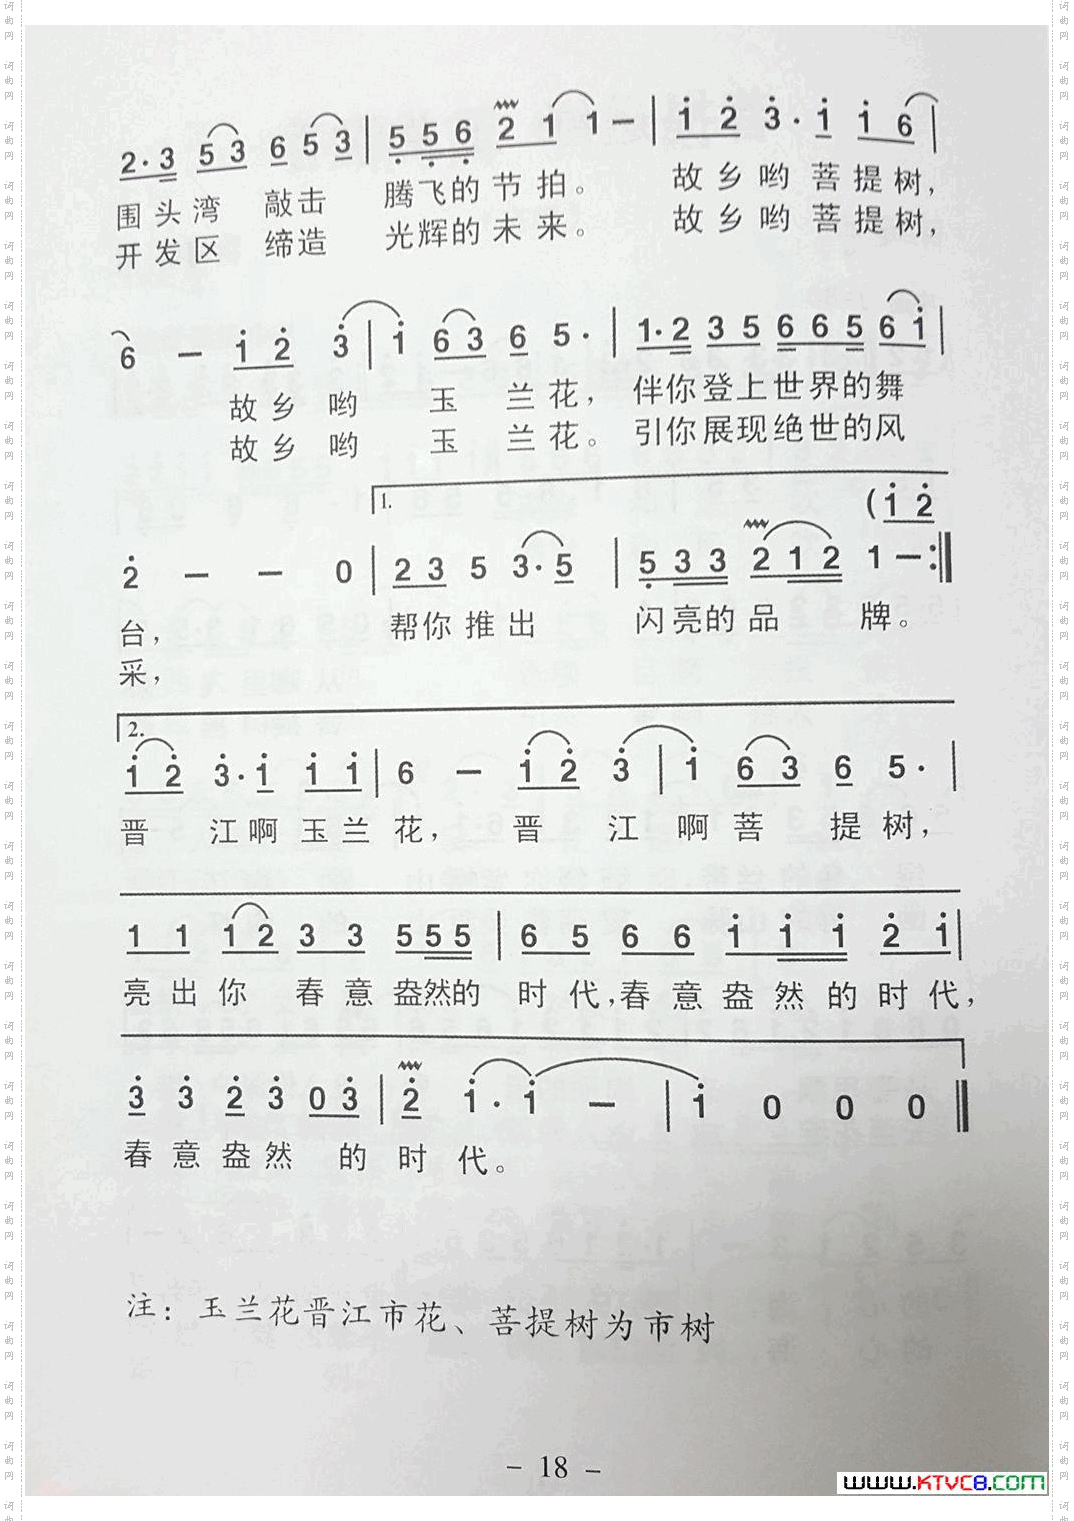 2·3 53 6 53 | 556 2 1 1 — | 1 2 3·1 1 6 |
围头湾 敲击 腾飞的节拍。 故乡哟菩提树，
开发区 缔造 光辉的未来。 故乡哟菩提树，
6 — 1 2 3 | 1 63 6 5· | 1·2 35 665 61 |
故乡 哟 玉 兰花，伴你登上世界的舞
故乡 哟 玉 兰花。引你展现绝世的风
1. (1 2
2 — — 0 | 23 5 3·5 | 533 212 1 —:‖
台， 帮你推出 闪亮的品 牌。
采，
2.
1 2 3·1 1 1 | 6 — 1 2 3 | 1 63 6 5· |
晋 江啊玉兰花， 晋 江 啊菩 提树，
1 1 12 33 555 | 65 66 1 1 1 2 1 |
亮出你 春意盎然的 时代，春意盎然的时代，
3 3 2 3 03 | 2 1·1 — | 1 0 0 0 ‖
春意盎然 的 时 代。
注：玉兰花晋江市花、菩提树为市树
- 18 -
www.KTVC8.com
词曲网